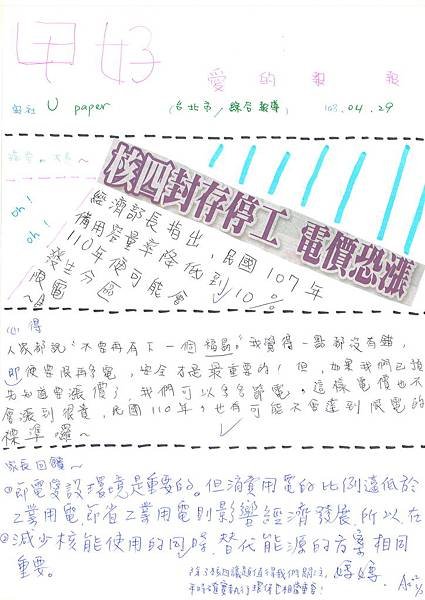 早安
愛的報報
報社 U paper (台北市/綜合報導) 103.04.29
oh!
oh!
核四封存停工 電價恐漲
經濟部長指出,民國107年
備用容量率降低到10%
110年便可能會
發生分區
限電
心得
人家都說"不要再有下一個福島"我覺得一點都沒有錯,
即使要限再多電,安全才是最重要的!但,如果我們已預
先知道要漲價了,我們可以多多節電,這樣電價也不
會漲到很貴,民國110年,也有可能不會達到限電的
標準囉~
家長回饋~
①節電愛護環境是重要的。但消費用電的比例遠低於
工業用電,節省工業用電則影響經濟發展,所以,在
②減少核能使用的同時,替代能源的方案相同
重要。
媽媽